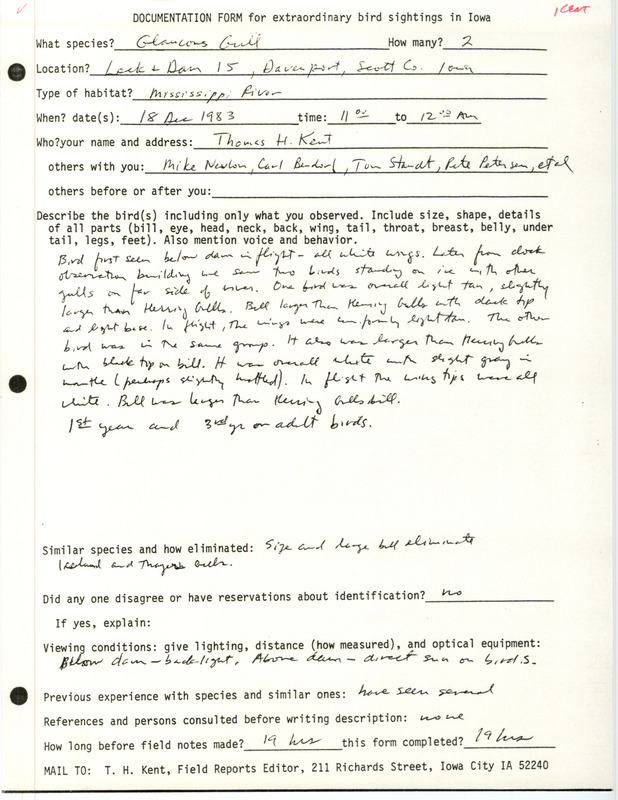 1 Cent
DOCUMENTATION FORM for extraordinary bird sightings in Iowa
What species? Glaucous Gull How many? 2
Location? Lock + Dam 15, Davenport, Scott Co. Iowa
Type of habitat? Mississippi River
When? date(s): 18 Dec 1983 time: 11 00 to 12 30 Am
Who?your name and address: Thomas H. Kent
others with you: Mike Newlon, Carl Bendorf, Tom Staudt, Pete Petersen, et al
others before or after you:
Describe the bird(s) including only what you observed. Include size, shape, details
of all parts (bill, eye, head, neck, back, wing, tail, throat, breast, belly, under
tail, legs, feet). Also mention voice and behavior.
Bird first seen below dam in flight - all white wings. Later from
observation building we saw two birds standing on ice with other
gulls on far side of river. One bird was overall light tan, slightly
larger than Herring Gulls. Bill larger than Herring Gulls with dark tip
and light base. In flight, the wings were uniformly light tan. The other
bird was in the same group. It also was larger than Herring Gulls
with black tip on bill. It was overall white with slight gray in
mantle (perhaps slightly mottled). In flight the wing tips were all
white. Bill was larger than Herring Gulls bill.
1st year and 3rd yr or adult birds.
Similar species and how eliminated: Size and large bill eliminate
Iceland and Thayer's Gulls.
Did any one disagree or have reservations about identification? no
If yes, explain:
Viewing conditions: give lighting, distance (how measured), and optical equipment:
Below dam - backlight. Above dam - direct sun on birds.
Previous experience with species and similar ones: have seen several
References and persons consulted before writing description: none
How long before field notes made? 19 hrs this form completed? 19 hrs
MAIL TO: T. H. Kent, Field Reports Editor, 211 Richards Street, Iowa City IA 52240